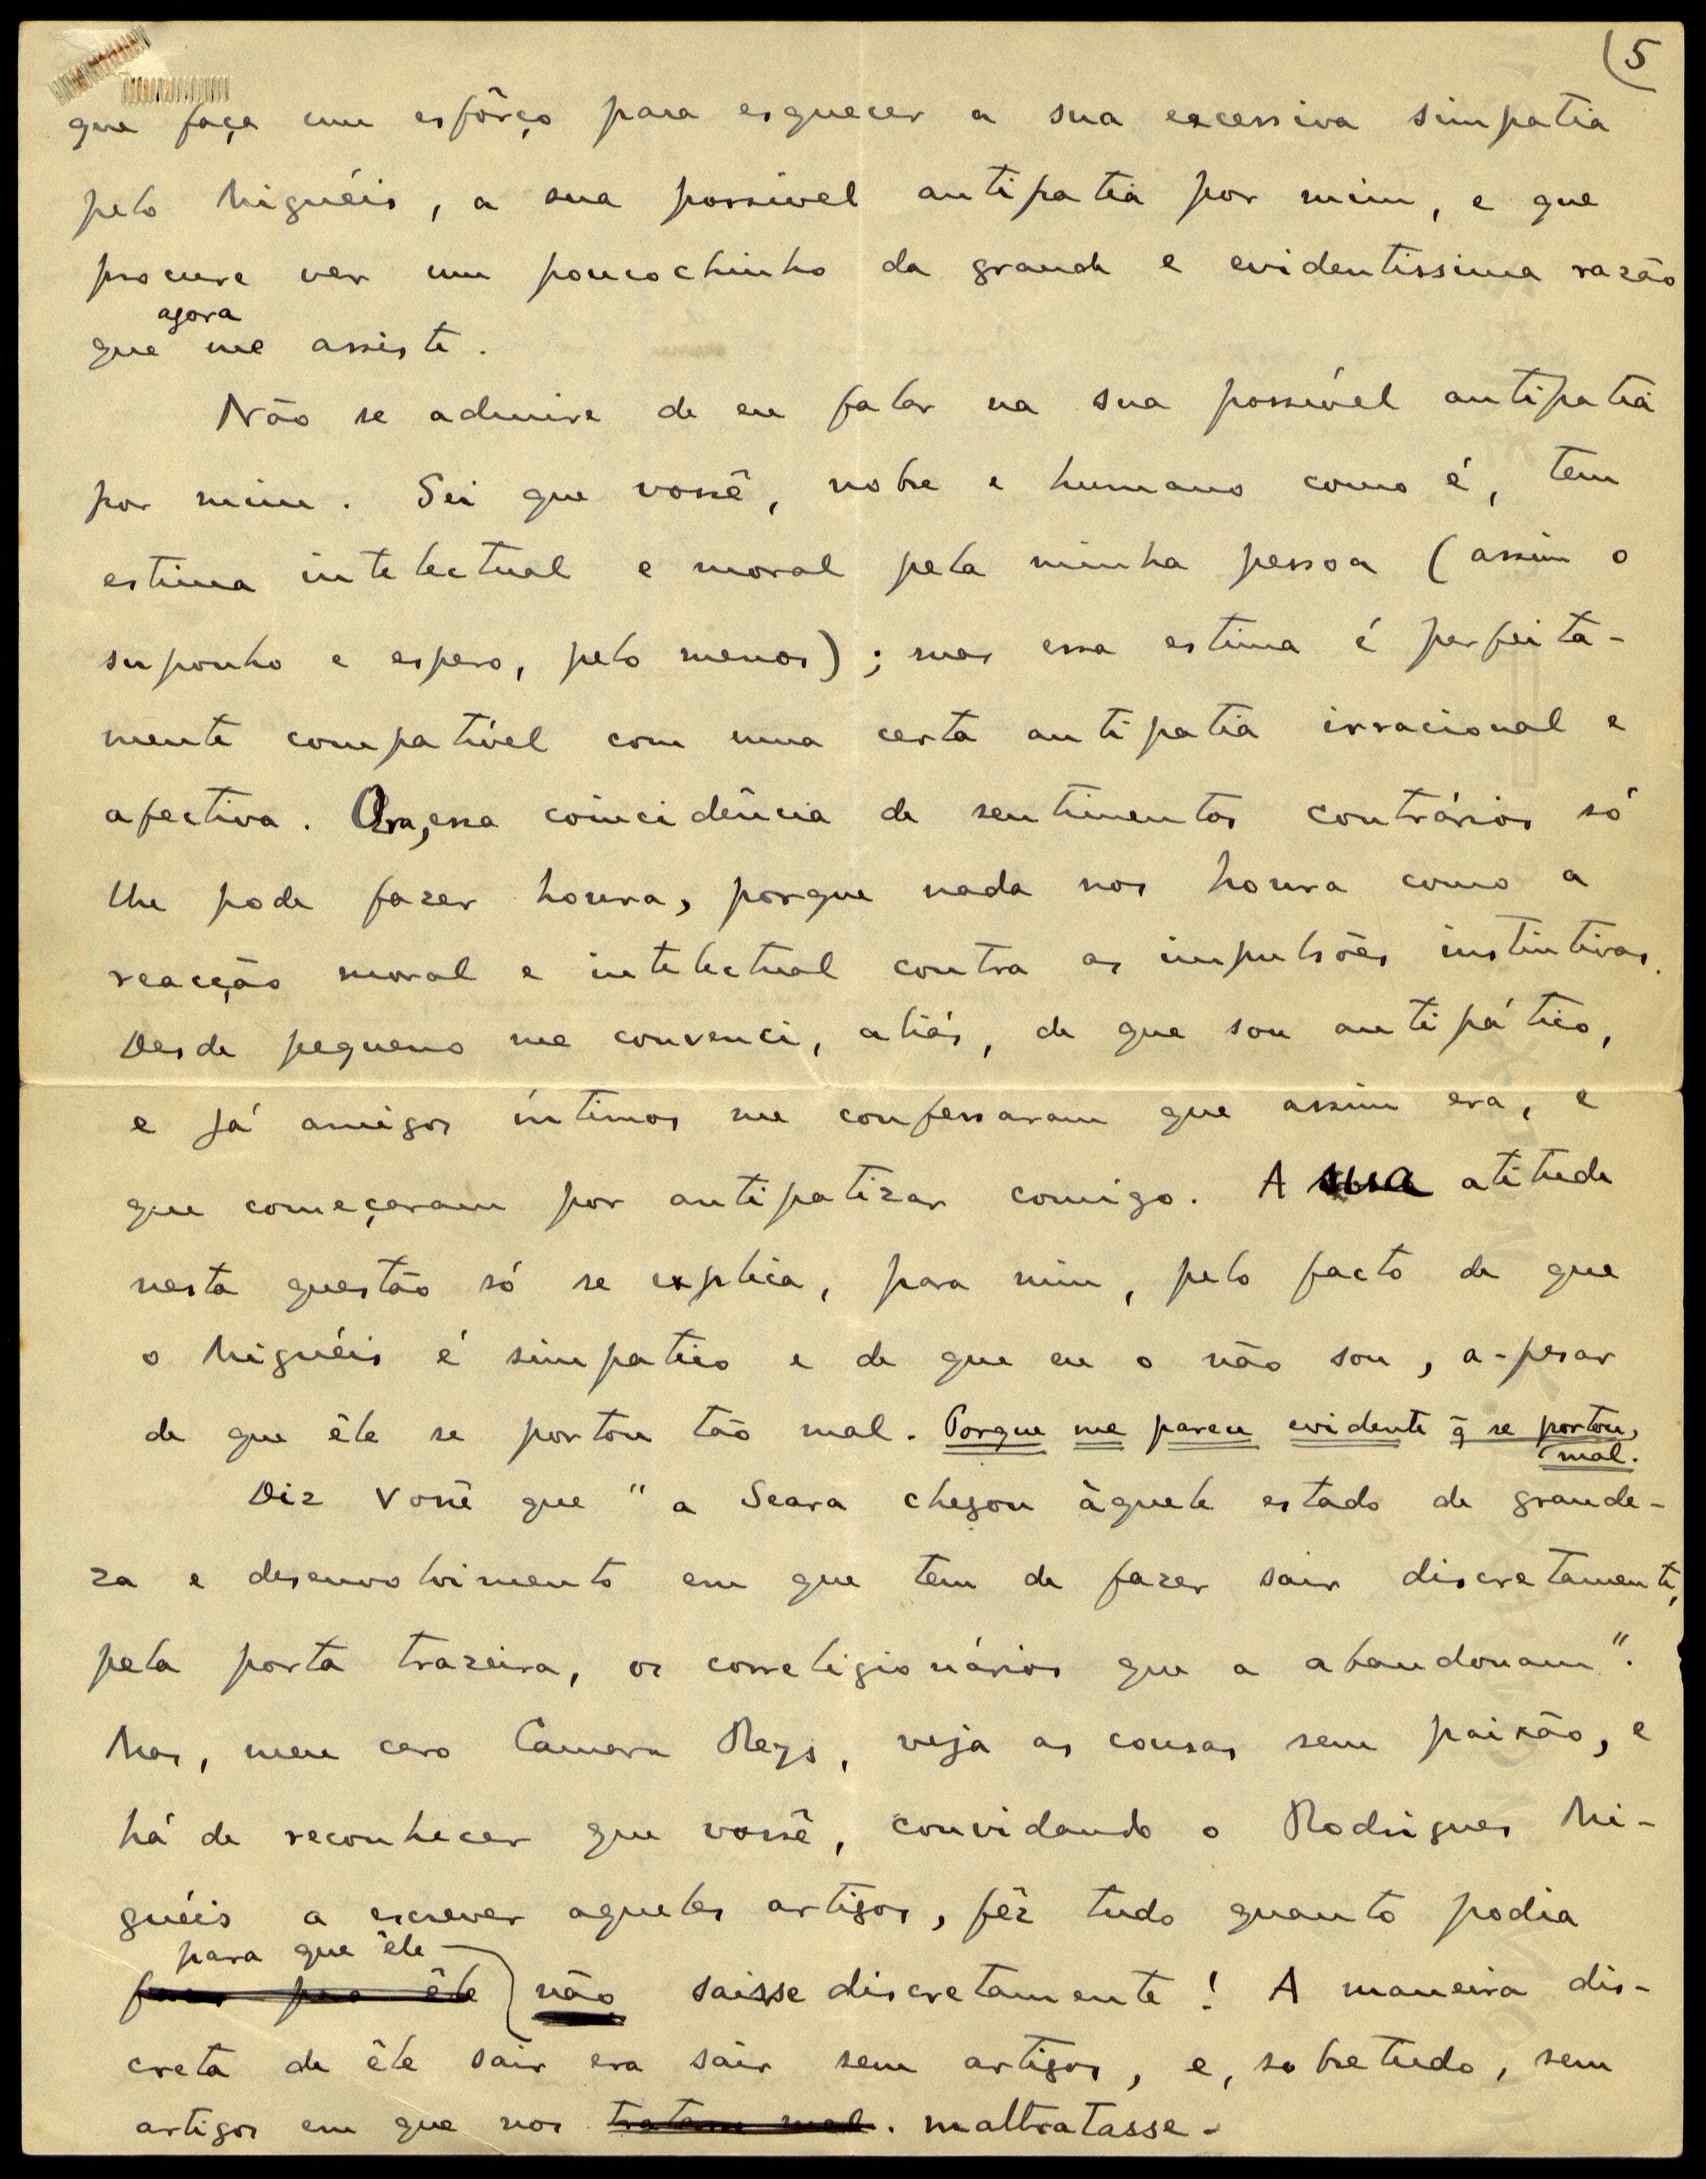 (5
que faça um esfôrço para esquecer a sua excessiva simpatia
pelo Miguéis, a sua possivel antipatia por mim, e que
procure ver um poucochinho da grande e evidentissima razão
agora
que me assiste.
Não se admire de eu falar na sua possível antipatia
por mim. Sei que vossê, nobre e humano como é, tem
estima intelectual e moral pela minha pessoa (assim o
suponho e espero, pelo menos); mas essa estima é perfeita-
mente compatível com uma certa antipatia irracional e
afectiva. Ora, essa coincidência de sentimentos contrários só
lhe pode fazer honra, porque nada nos honra como a
reacção moral e intelectual contra as impulsões instintivas.
Desde pequeno me convenci, aliás, de que sou antipático,
e já amigos íntimos me confessaram que assim era, e
que começaram por antipatizar comigo. A sua atitude
nesta questão só se explica, para mim, pelo facto de que
o Miguéis é simpatico e de que eu o não sou, a-pesar
de que êle se portou tão mal. Porque me parece evidente q̃ se portou
mal.
Diz Vossê que "a Seara chegou àquele estado de grande-
za e desenvolvimento em que tem de fazer sair discretamente,
pela porta trazeira, os correligionários que a abandonam".
Mas, meu caro Camara Reys, veja as cousas sem paixão, e
há de reconhecer que vossê, convidando o Rodrigues Mi-
guéis a escrever aqueles artigos, fêz tudo quanto podia
para que êle
não saisse discretamente! A maneira dis-
creta de êle sair era sair sem artigos, e, sobretudo, sem
artigos em que nos tratasse mal. maltratasse.